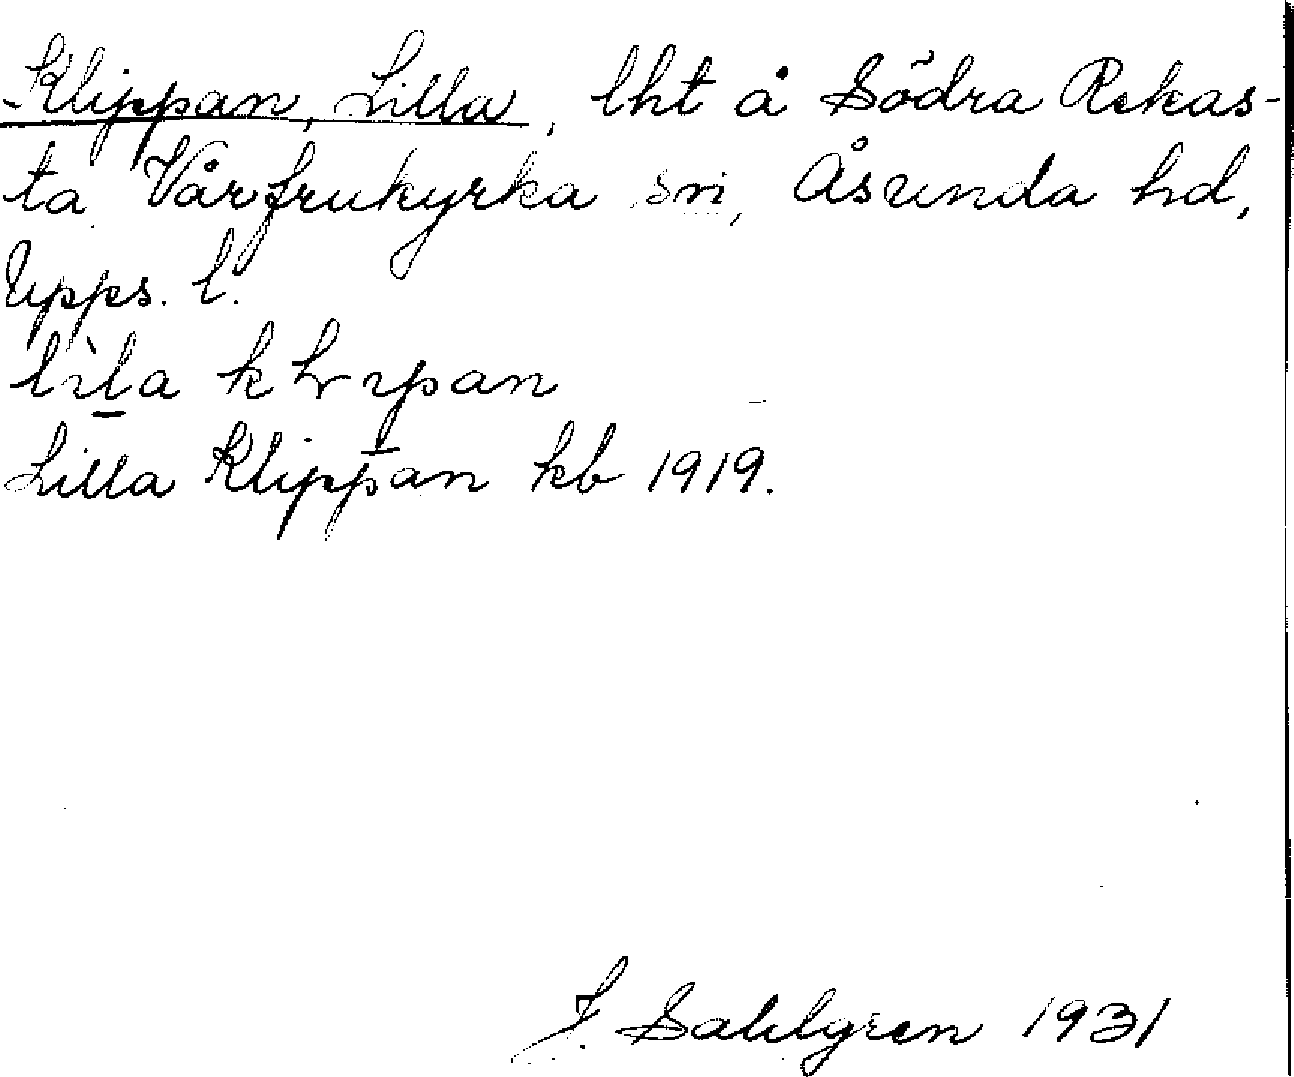 Klippan, Lilla, lht å Södra Rekas-
ta Vårfrukyrka sn, Åsunda hd,
Upps. l.
lìla klıpan
Lilla Klippan kb 1919.
J. Sahlgren 1931